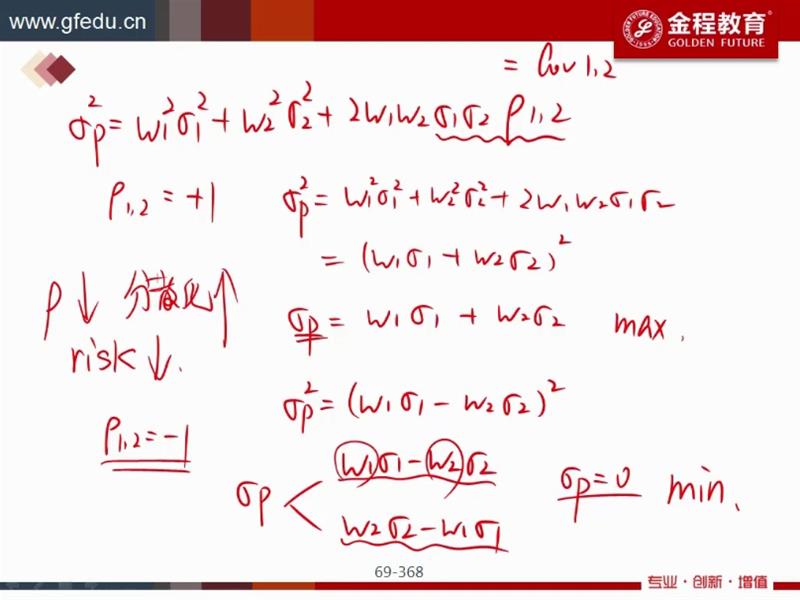 www.gfedu.cn
金程教育
GOLDEN FUTURE
= Cov 1,2
σp² = w1²σ1² + w2²σ2² + 2w1w2σ1σ2 ρ1,2
ρ1,2 = +1
σp² = w1²σ1² + w2²σ2² + 2w1w2σ1σ2
= (w1σ1 + w2σ2)²
ρ↓ 分散化↑
risk↓.
σp = w1σ1 + w2σ2 max.
σp² = (w1σ1 - w2σ2)²
ρ1,2 = -1
σp <
w1σ1 - w2σ2
w2σ2 - w1σ1
σp = 0 min.
69-368
专业·创新·增值